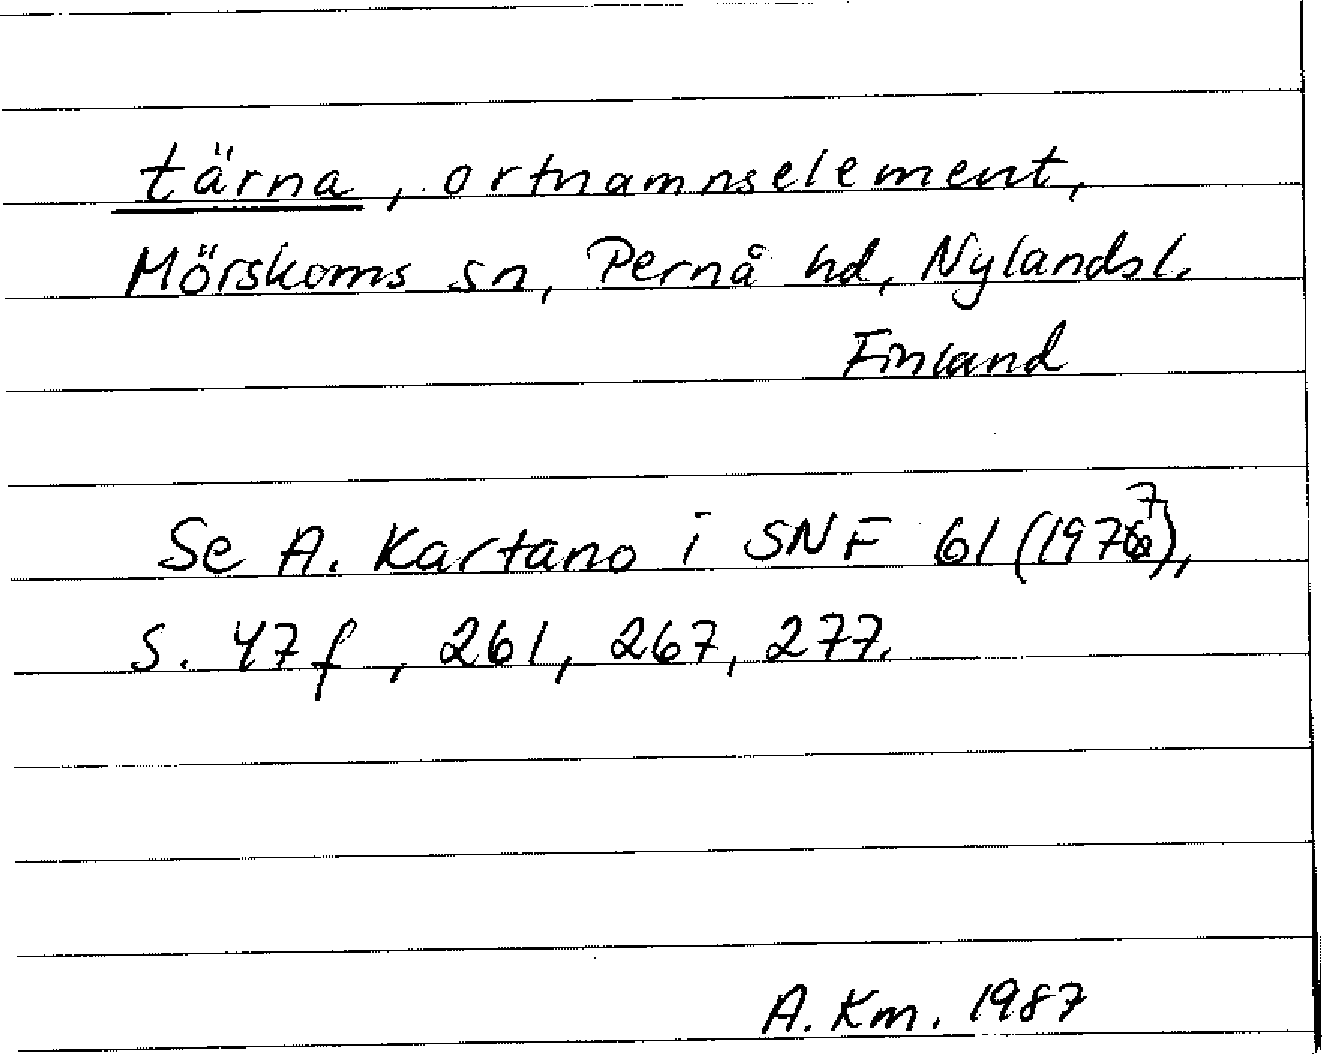 tärna, ortnamnselement,
Mörskoms sn, Pernå hd, Nylands l.
Finland
Se A. Kartano i SNF 61 (1977),
s. 47 f, 261, 267, 277.
A. Km. 1987